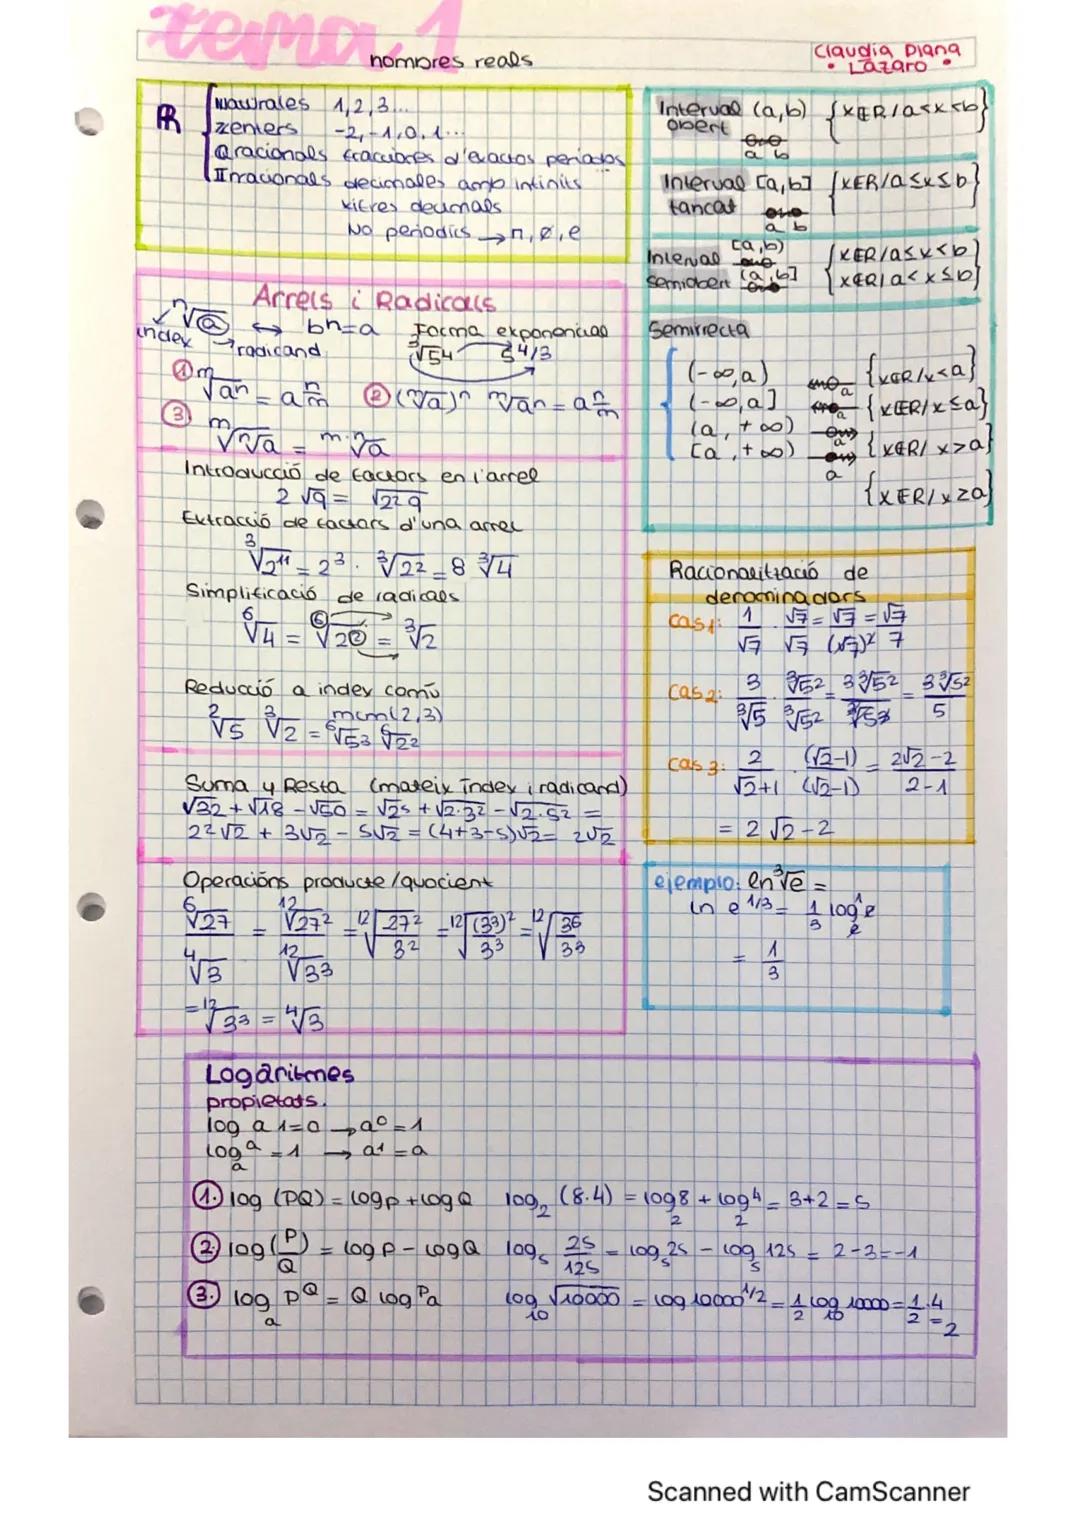 tema 1
nombres reals
Claudia Diana
• Lázaro •
ℝ
naturales 1,2,3...
Zenters -2,-1,0,1...
Qracionals fraccions d'exactos periodos
IIrracionals decimales amb infinits
xifres decimals
No periodics → π, ø, e
Interval (a,b) {x∈R/a<x<b}
obert
a b
Interval [a,b] {x∈R/a≤x≤b}
tancat
a b
Interval [a,b) {x∈R/a≤x<b}
semiobert (a,b] {x∈R/a<x≤b}
Semirrecta
(-∞,a) a {x∈R/x<a}
(-∞,a] a {x∈R/x≤a}
(a,+∞) a {x∈R/x>a}
[a,+∞) a {x∈R/x≥a}
Arrels i Radicals
ⁿ√a ↔ bⁿ=a Forma exponencial
index radicand ³√5⁴ 5^4/3
① ᵐ√aⁿ = a^n/m ② (ᵐ√a)ⁿ ᵐ√aⁿ = a^n/m
③ ᵐ√ⁿ√a = ᵐ·ⁿ√a
Introducció de factors en l'arrel
2 √9 = √2²9
Extracció de factors d'una arrel
³√2¹¹ = 2³ · ³√2² = 8 ³√4
Simplificació de radicals
⁶√4 = ⁶√2② = ³√2
Reducció a index comú
²√5 ³√2 = mcm(2,3) ⁶√5³ ⁶√2²
Suma y Resta (mateix índex i radicand)
√32 + √18 - √50 = √2⁵ + √2·3² - √2·5² =
2²√2 + 3√2 - 5√2 = (4+3-5)√2 = 2√2
Operacións producte/quocient
⁶√27 / ⁴√3 = ¹²√27² / ¹²√3³ = ¹²√27²/3² = ¹²√(3³)²/3³ = ¹²√3⁶/3³
= ¹²√3³ = ⁴√3
Racionalització de
denominadors
Cas 1: 1/√7 · √7/√7 = √7/(√7)² = √7/7
Cas 2: 3/³√5 · ³√5²/³√5² = 3³√5²/³√5³ = 3³√5²/5
Cas 3: 2/√2+1 · (√2-1)/(√2-1) = 2√2-2/2-1
= 2√2-2
ejemplo: ln ³√e =
ln e^1/3 = 1/3 log e¹ e
= 1/3
Logaritmes
propietats.
log a 1=0 → a⁰=1
logₐ a = 1 → a¹ = a
①. log (PQ) = logP + logQ log₂ (8·4) = log₂8 + log₂4 = 3+2 = 5
② log (P/Q) = log P - log Q log₅ 25/125 = log₅25 - log₅125 = 2-3=-1
③. logₐ P^Q = Q log Pa log₁₀ √10000 = log 10000^1/2 = 1/2 log₁₀ 10000 = 1/2·4
= 2
Scanned with CamScanner